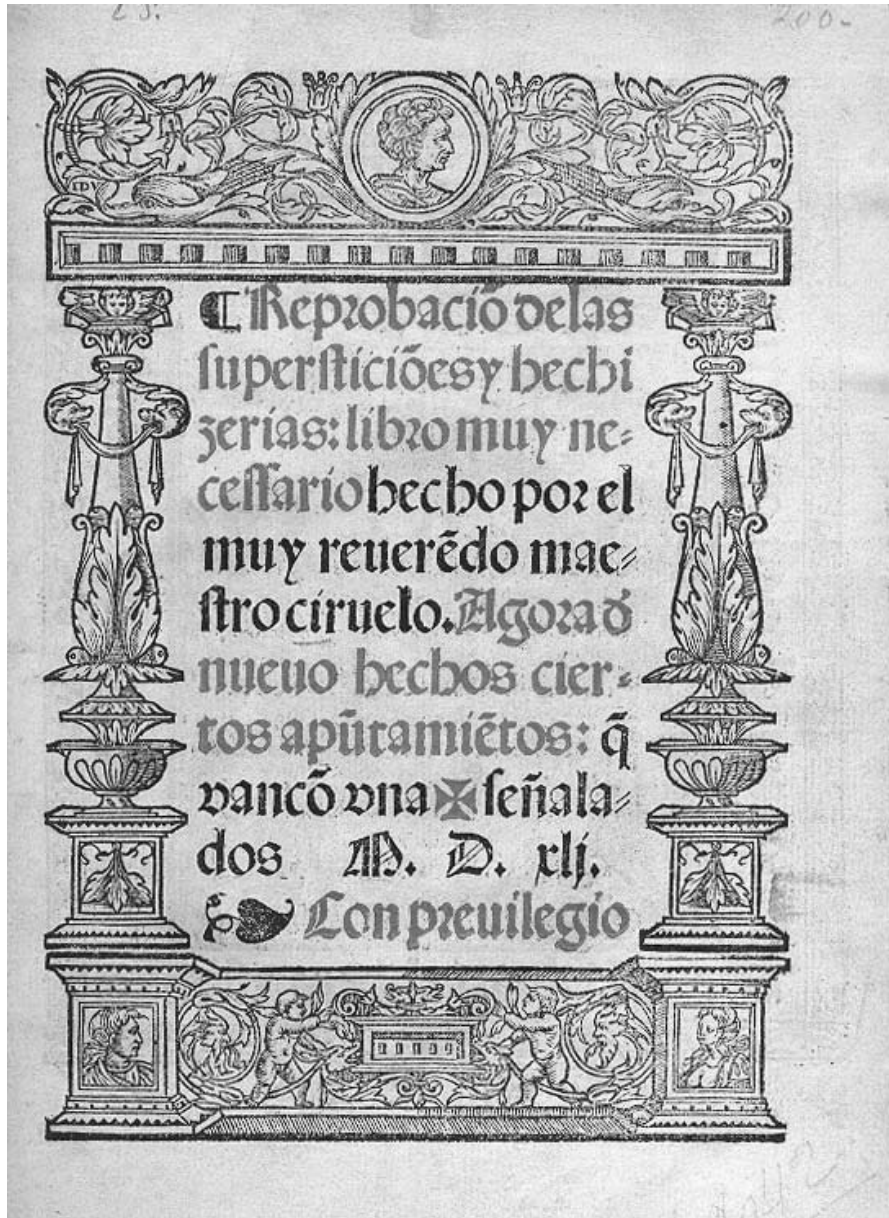 25.
200-
IDV
¶ Reprobaciõ delas
supersticiõesy hechi
zerias: libro muy ne-
cessario hecho por el
muy reuerẽdo mae-
stro ciruelo. Agora đ
nueuo hechos cier-
tos apũtamiẽtos: q̃
van cõ vna ✠ señala-
dos M. D. xlj.
❧ Con preuilegio